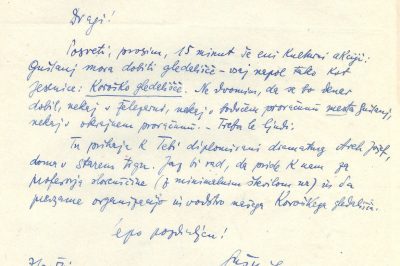 Dragi!
Posveti, prosim, 15 minut še eni kulturni akciji:
Guštanj mora dobiti gledališče – vsaj napol tako kot
Jesenice: Koroško gledališče. Ne dvomim, da se bo denar
dobil, nekaj v Železarni, nekaj v bodočem proračunu mesta Guštanj,
nekaj v okrajnem proračunu. – Treba le ljudi.
Tu prihaja k Tebi diplomirani dramaturg Jožef,
doma v Starem trgu. Jaz bi rad, da pride k nam za
profesorja slovenščine (z minimalnim številom ur) in da
prevzame organizacijo in vodstvo našega Koroškega gledališča.
Lepo pozdravljen!